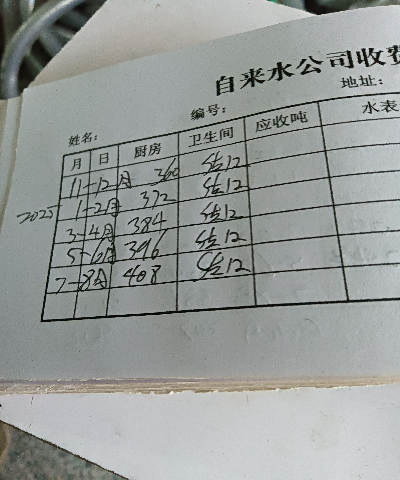 自来水公司收费
姓名: 编号: 地址:
月 日 厨房 卫生间 应收吨 水表
11-12月 360 估12
2025 1-2月 372 估12
3-4月 384 估12
5-6月 396 估12
7-8月 408 估12